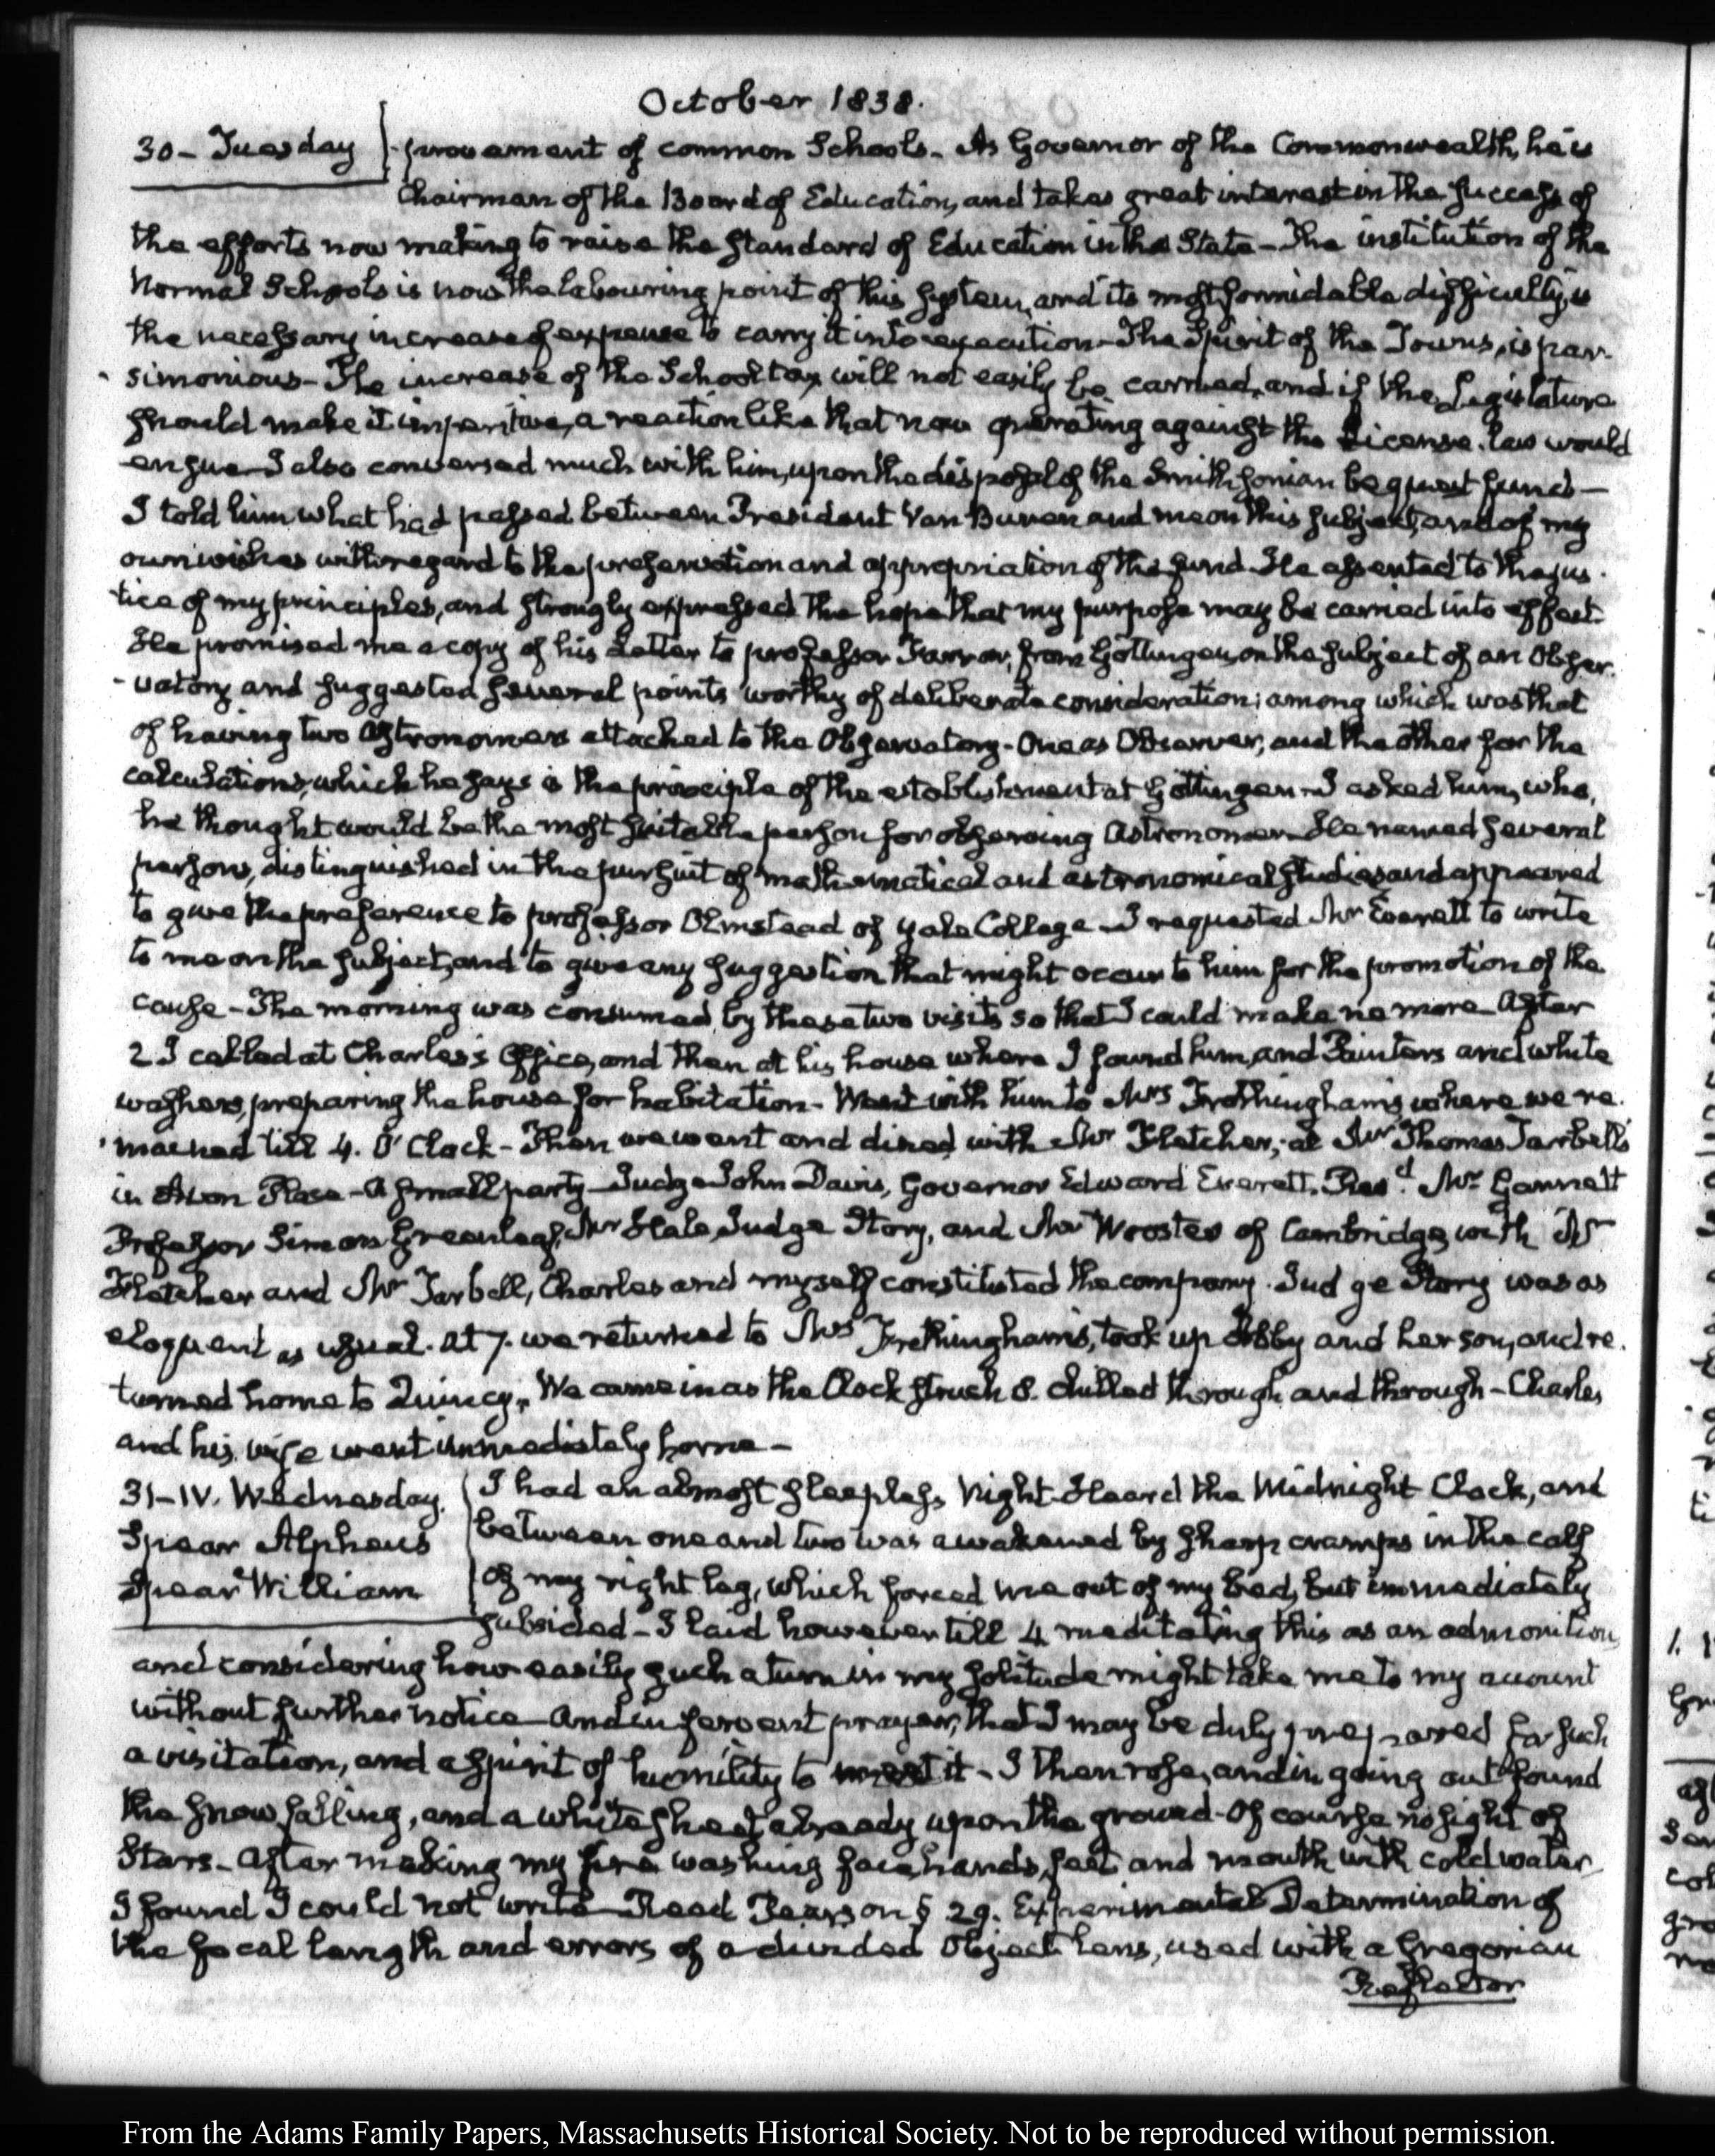 October 1838.
30 - Tuesday
-provement of common Schools - As Governor of the Commonwealth, he is
Chairman of the Board of Education, and takes great interest in the success of
the efforts now making to raise the Standard of Education in the State - The institution of the
Normal Schools is now the labouring point of this system, and its most formidable difficulty, is
the necessary increase of expense to carry it into execution - The Spirit of the Towns, is par-
simonious - The increase of the School tax will not easily be carried, and if the Legislature
should make it imperitive, a reaction like that now operating against the License law would
ensue - I also conversed much with him, upon the disposal of the Smithsonian bequest fund -
I told him what had passed between President Van Buren and me on this subject, and of my
own wishes with regard to the preservation and appropriation of the fund - He assented to the jus-
tice of my principles, and strongly expressed the hope that my purpose may be carried into effect.
He promised me a copy of his Letter to professor Farrar, from Göttingen, on the subject of an Obser-
-vatory and suggested several points worthy of deliberate consideration; among which was that
of having two Astronomers attached to the Observatory - One as Observer, and the other for the
calculations, which he says is the principle of the establishment at Göttingen - I asked him, who,
he thought would be the most suitable person for observing Astronomer - He named several
persons, distinguished in the pursuit of mathematical and astronomical studies and appeared
to give the preference to professor Olmstead of Yale College - I requested Mr Everett to write
to me on the subject, and to give any suggestion that might occur to him for the promotion of the
cause - The morning was consumed, by these two visits so that I could make no more - After
2 I called at Charles's Office, and then at his house where I found him, and Painters and white
washers, preparing the house for habitation - Went with him to Mrs Frothingham's, where we re-
mained till 4. O'Clock - Then we went and dined with Mr Fletcher, at Mr Thomas Tarbell's
in Avon Place - A small party - Judge John Davis, Governor Edward Everett, Revd. Mr Gannett
Professor Simon Greenleaf, Mr Hale, Judge Story, and Mr Worster of Cambridge, with Mr
Fletcher and Mr Tarbell, Charles and myself constituted the company. Judge Story was as
eloquent as usual. At 7. we returned to Mrs Frothingham's, took up Abby and her son, and re-
turned home to Quincy, We came in as the Clock struck 8. chilled through and through - Charles
and his wife went immediately home -
31 - IV. Wednesday.
Spear Alpheus
Spear William
I had an almost sleepless Night - Heard the Midnight Clock, and
between one and two was awakened by sharp cramps in the calf
of my right leg, which forced me out of my bed, but immediately
subsided - I laid however till 4 meditating this as an admonition,
and considering how easily such a turn in my solitude might take me to my account
without further notice - And in fervent prayer, that I may be duly prepared for such
a visitation, and a spirit of humility to meet it - I then rose, and in going out found
the snow falling, and a white sheet already upon the ground - Of course no sight of
Stars - After making my fire washing face, hands, feet and mouth with cold water
I found I could not write - Read Pearson § 29. Experimental Determination of
the focal length and errors of a divided Object Lens, used with a Gregorian
Reflector
From the Adams Family Papers, Massachusetts Historical Society. Not to be reproduced without permission.